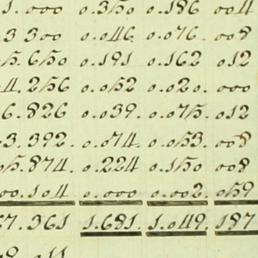 1.000 0.350 0.186 004
3 300 0.046. 0.076. 008
5.650 0.191 0.162 012
4.256 0.052 0.020. 000
6.826 0.039. 0.075. 012
3.392. 0.074. 0.053. 008
5.874. 0.224 0.150 008
00.104. 0.000 0.002. 059
7.361 1.681. 1.049. 187